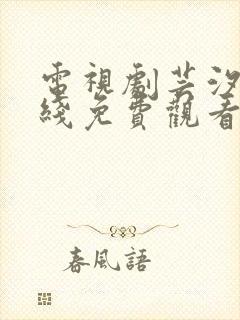 電視劇芸汐
綫免費觀看
春風語